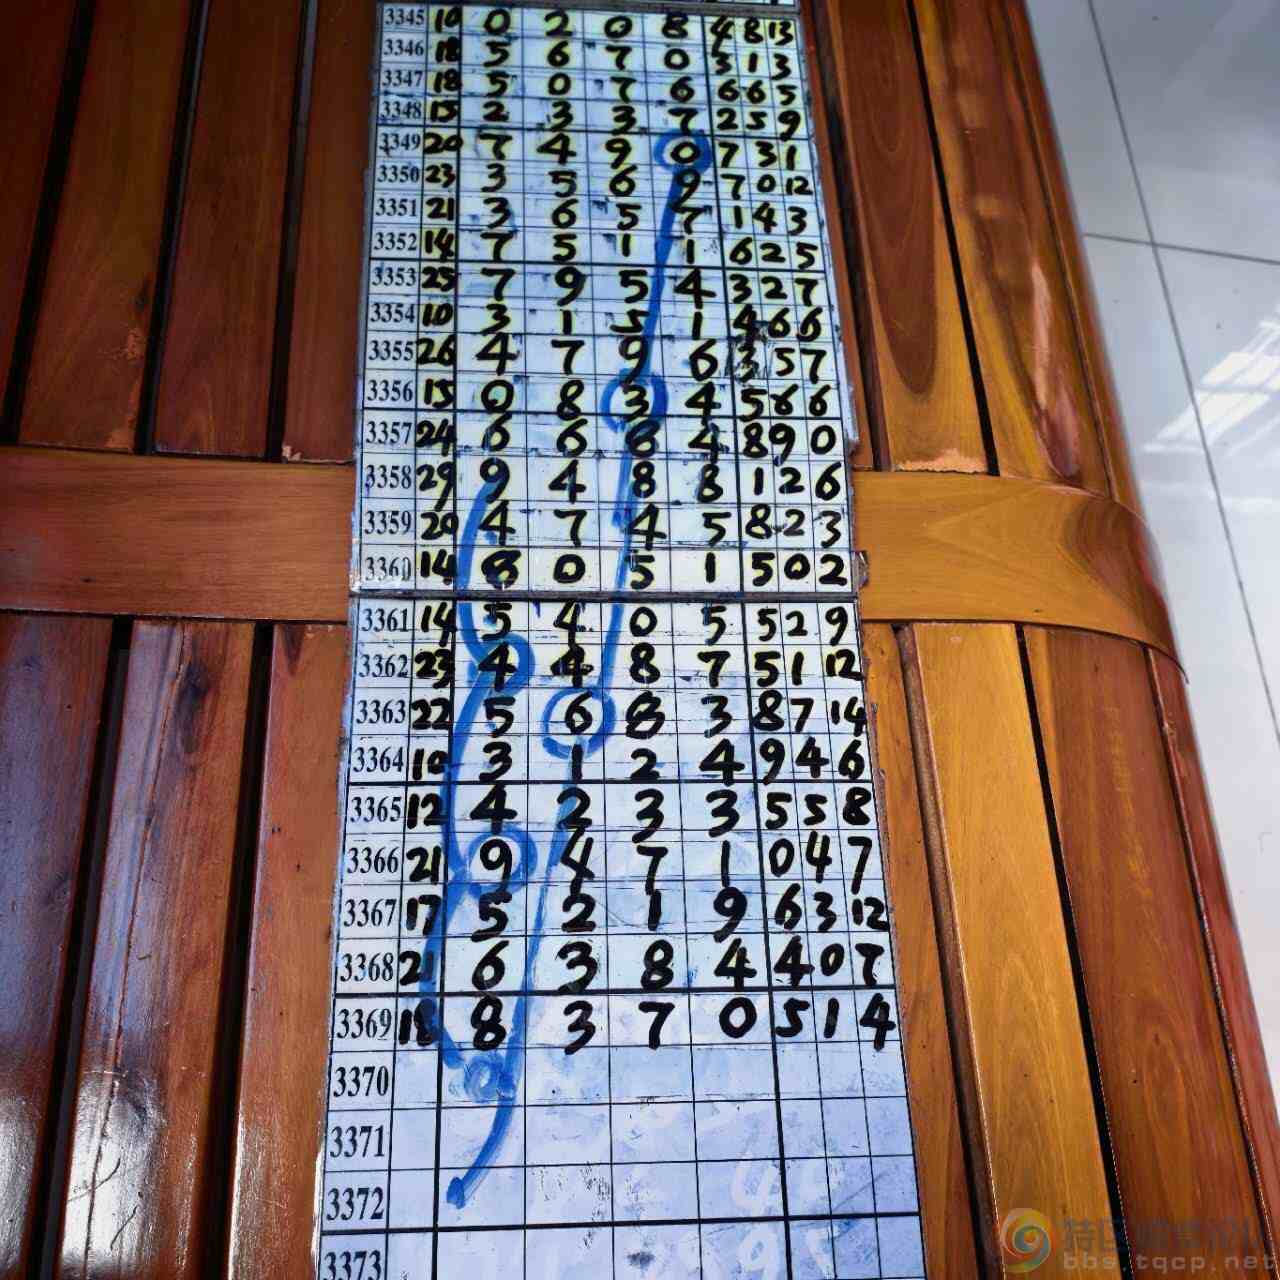 3345 10 0 2 0 8 4 8 13
3346 18 5 6 7 0 5 1 3
3347 18 5 0 7 6 6 6 5
3348 15 2 3 3 7 2 5 9
3349 20 7 4 9 0 7 3 1
3350 23 3 5 6 9 7 0 12
3351 21 3 6 5 7 1 4 3
3352 14 7 5 1 1 6 2 5
3353 25 7 9 5 4 3 2 7
3354 10 3 1 5 1 4 6 6
3355 26 4 7 9 6 3 5 7
3356 15 0 8 3 4 5 6 6
3357 24 6 6 6 4 8 9 0
3358 29 9 4 8 8 1 2 6
3359 20 4 7 4 5 8 2 3
3360 14 8 0 5 1 5 0 2
3361 14 5 4 0 5 5 2 9
3362 23 4 4 8 7 5 1 12
3363 22 5 6 8 3 8 7 14
3364 10 3 1 2 4 9 4 6
3365 12 4 2 3 3 5 5 8
3366 21 9 4 7 1 0 4 7
3367 17 5 2 1 9 6 3 12
3368 21 6 3 8 4 4 0 7
3369 18 8 3 7 0 5 1 4
3370
3371
3372
3373
bbs.tqcp.net